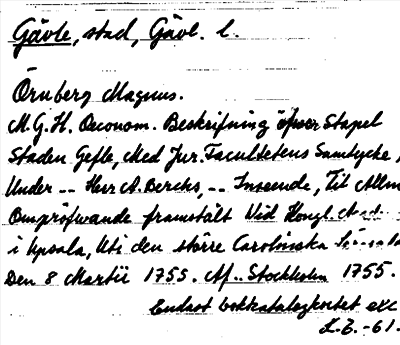 Gävle, stad, Gävl. l.
Örnberg Magnus.
M.G.H. Oeconom. Beskrifning öfwer Stapel
Staden Gefle, Med Jur. Facultetens Samtycke,
Under -- Herr A. Berchs, -- Inseende, Til Allm
Ompröfwande framstält Wid Kongl.
i Upsala, Uti den större Carolinska
Den 8 Martii 1755. Af.. Stockholm 1755.
Endast bokkatalogkortet exc
L.E.-61.